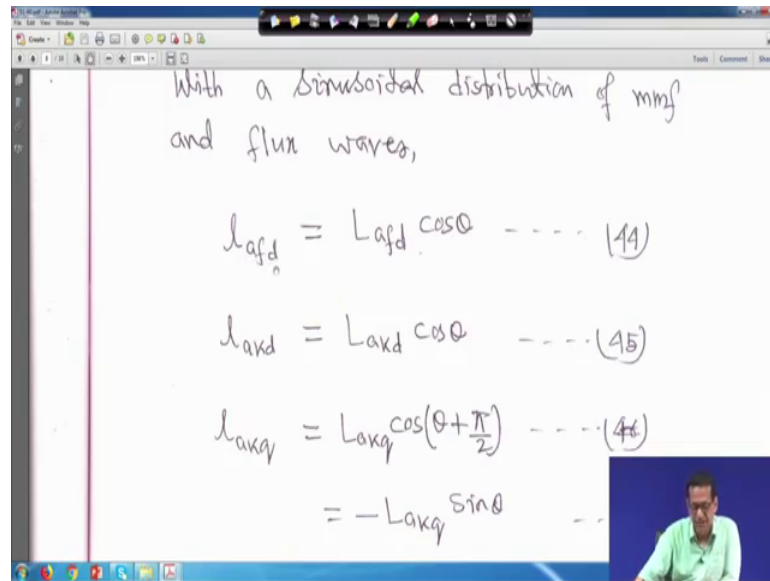 51-60.pdf - Adobe Acrobat Pro
File Edit View Window Help
Create
Tools Comment Share
With a Sinusoidal distribution of mmf
and flux waves,
lafd = Lafd cosθ ---- (44)
lakd = Lakd cosθ ---- (45)
lakq = Lakq cos(θ+π/2) ---- (46)
= -Lakq sinθ --